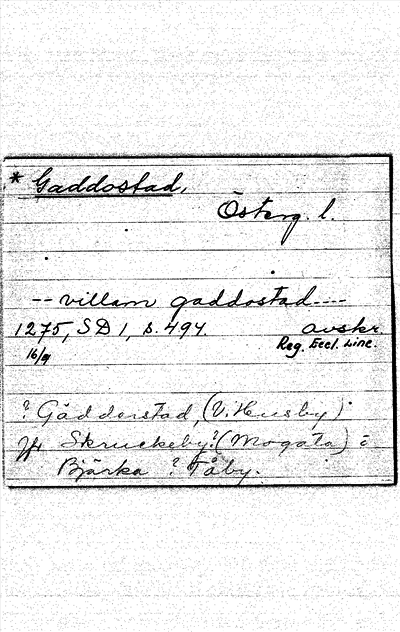 * Gaddostad,
Österg. l.
-- villam gaddostad ----
1275, SD 1, s. 494. avskr.
16/9 Reg. Eccl. Linc.
? Gädderstad, (V. Husby)
Jfr Skruckeby? (Mogata) o.
Bjärka ? Tåby.